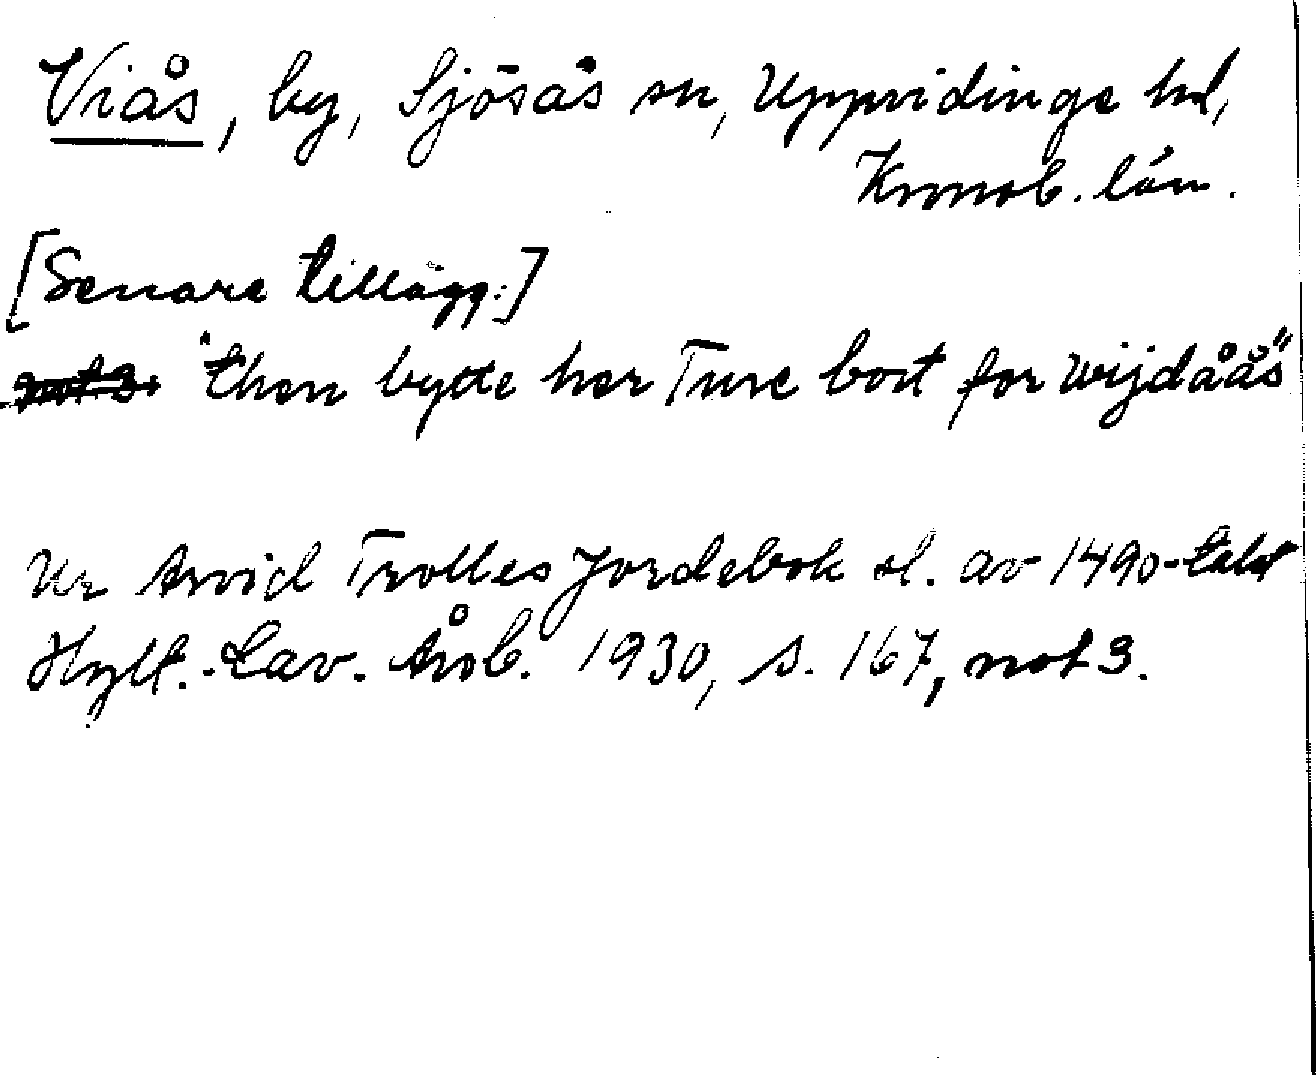 Viås, by, Sjösås sn, Uppvidinge hd,
Kronob. län.
[Senare tillägg:]
not 3. "then bytte her Ture bort for wijdåås"
Ur Arvid Trolles Jordebok sl. av 1490-talet
Hylt.-Cav. Årsb. 1930, s. 167, not 3.